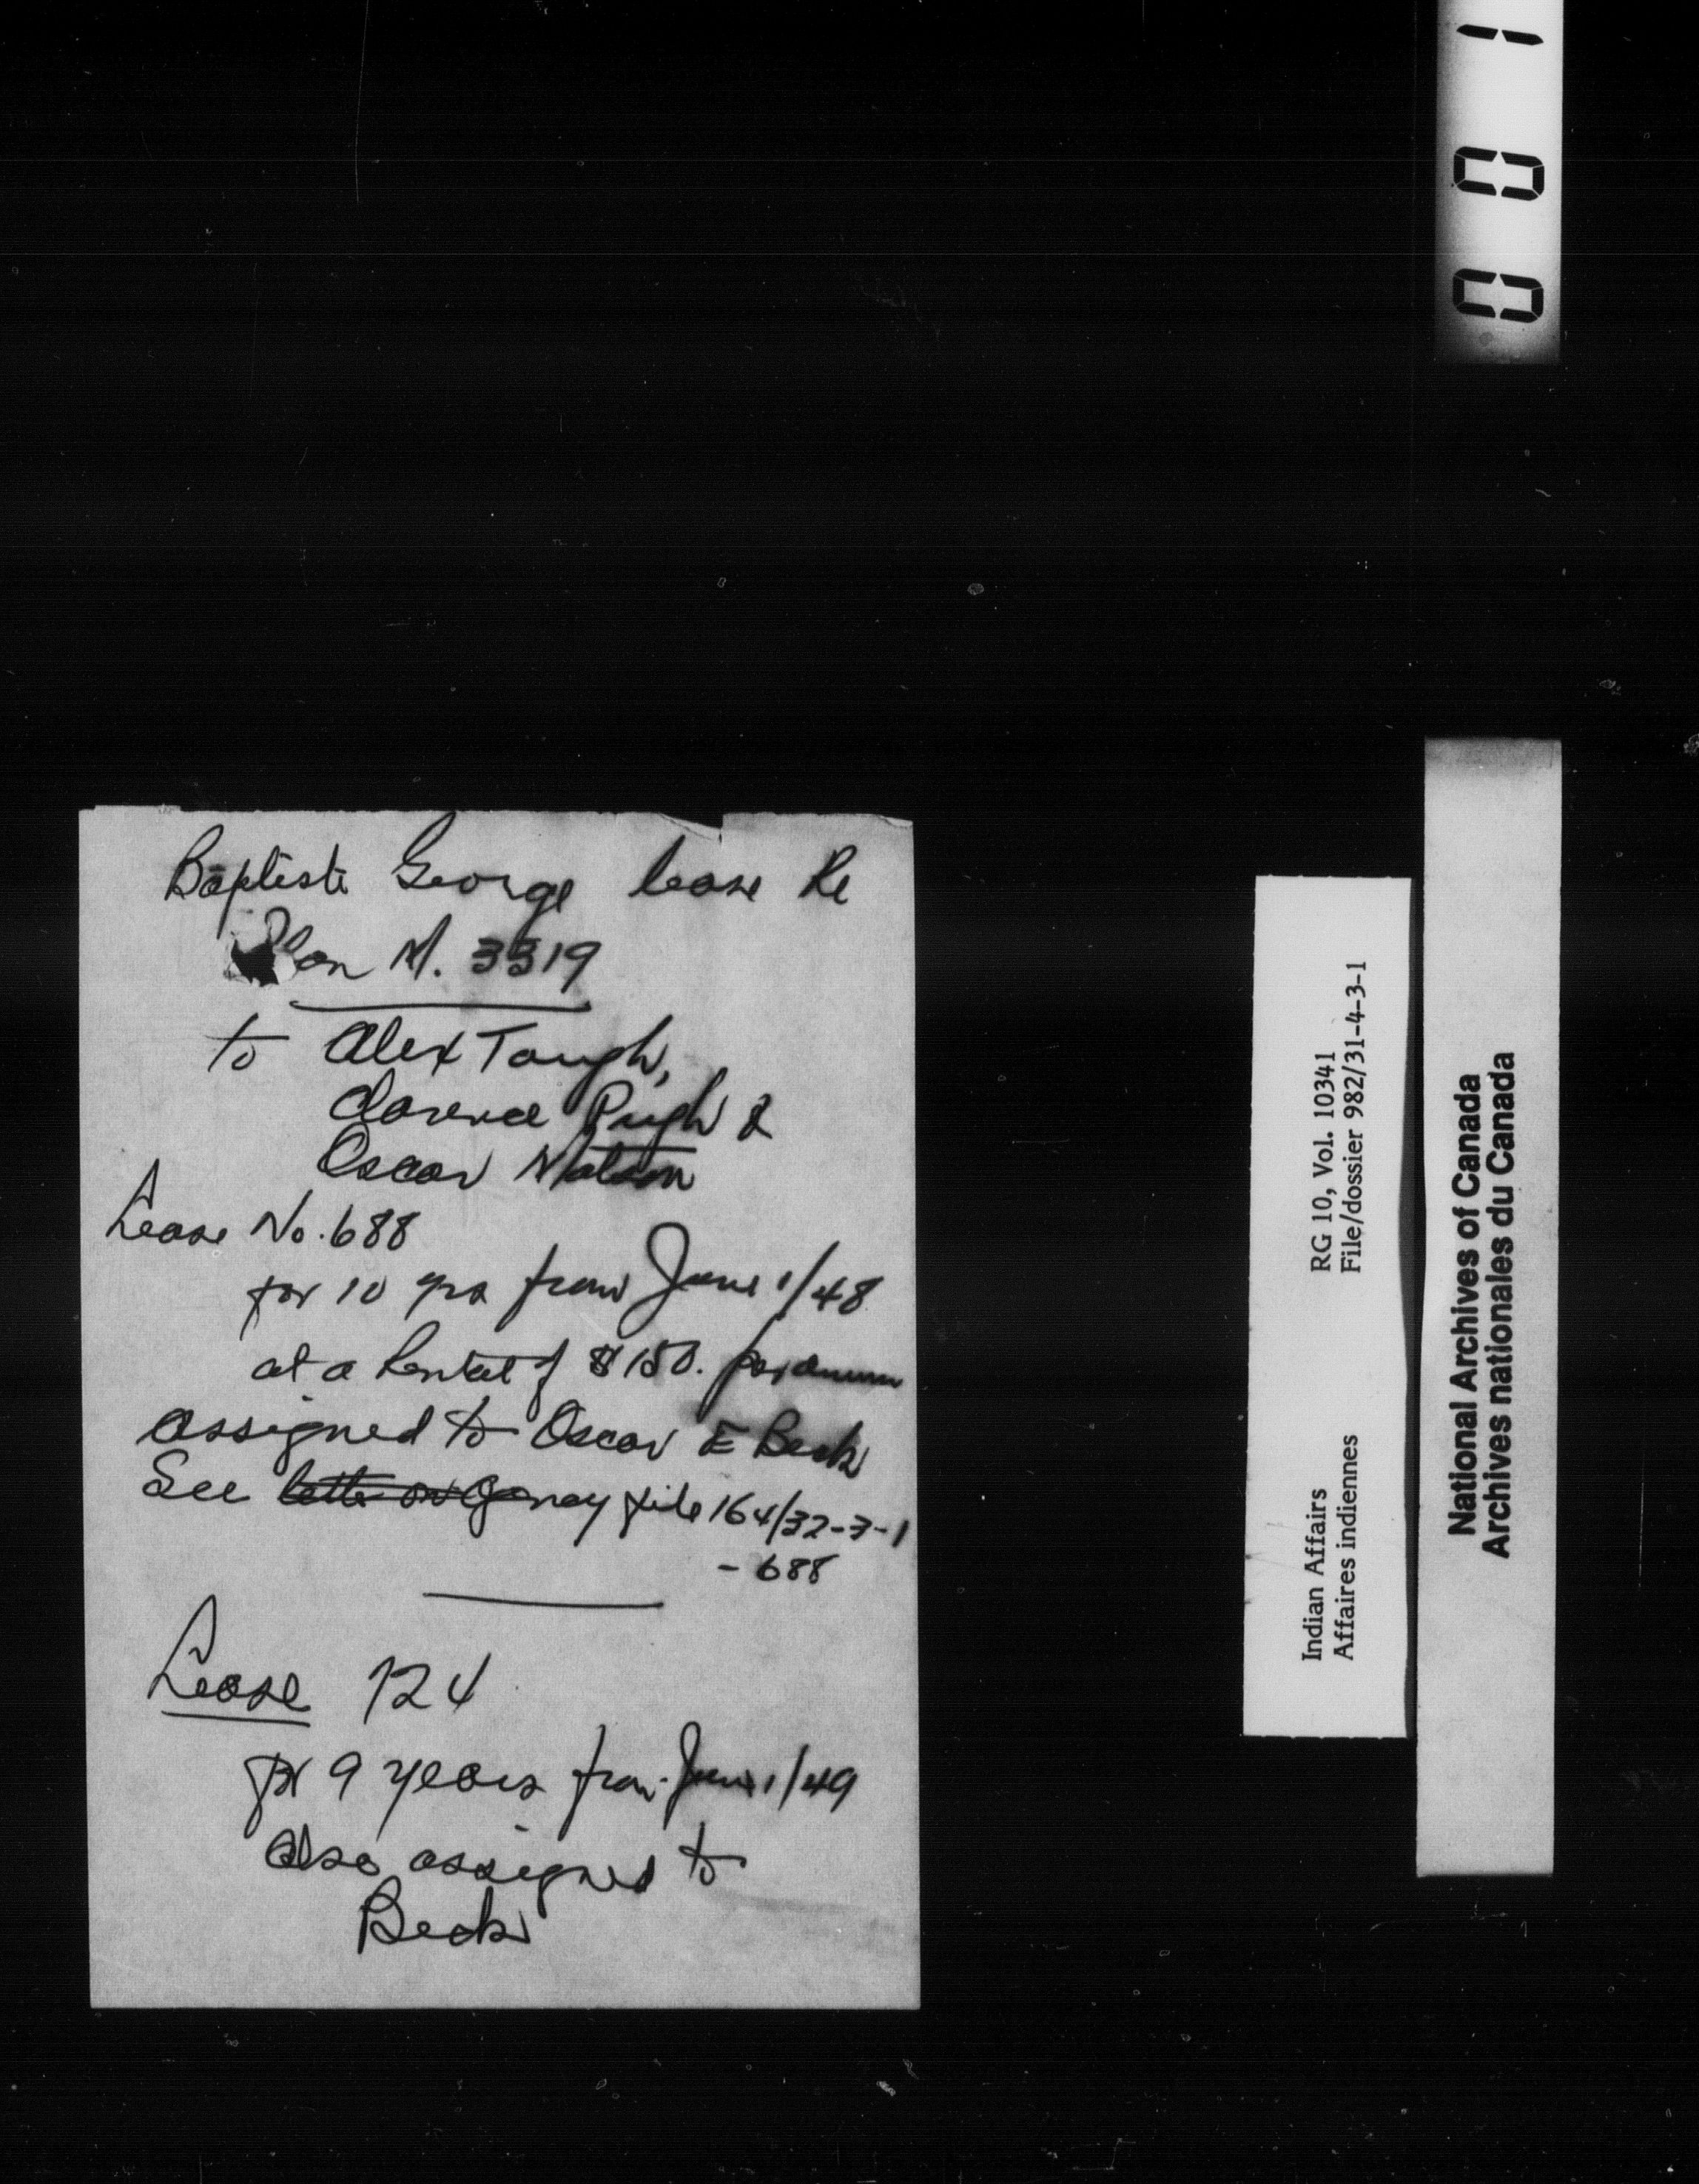 Baptiste George lease Re
Plan M. 3319
to Alex Tough,
Clarence Pugh &
Oscar Matson
Lease No. 688
for 10 yrs from June 1/48
at a Rental of $150. per annum
assigned to Oscar E Beck
See letter on Agency file 164/32-3-1
- 688
Lease 724
for 9 years from June 1/49
also assigned to
Beck
001
RG 10, Vol. 10341
File/dossier 982/31-4-3-1
Indian Affairs
Affaires indiennes
National Archives of Canada
Archives nationales du Canada